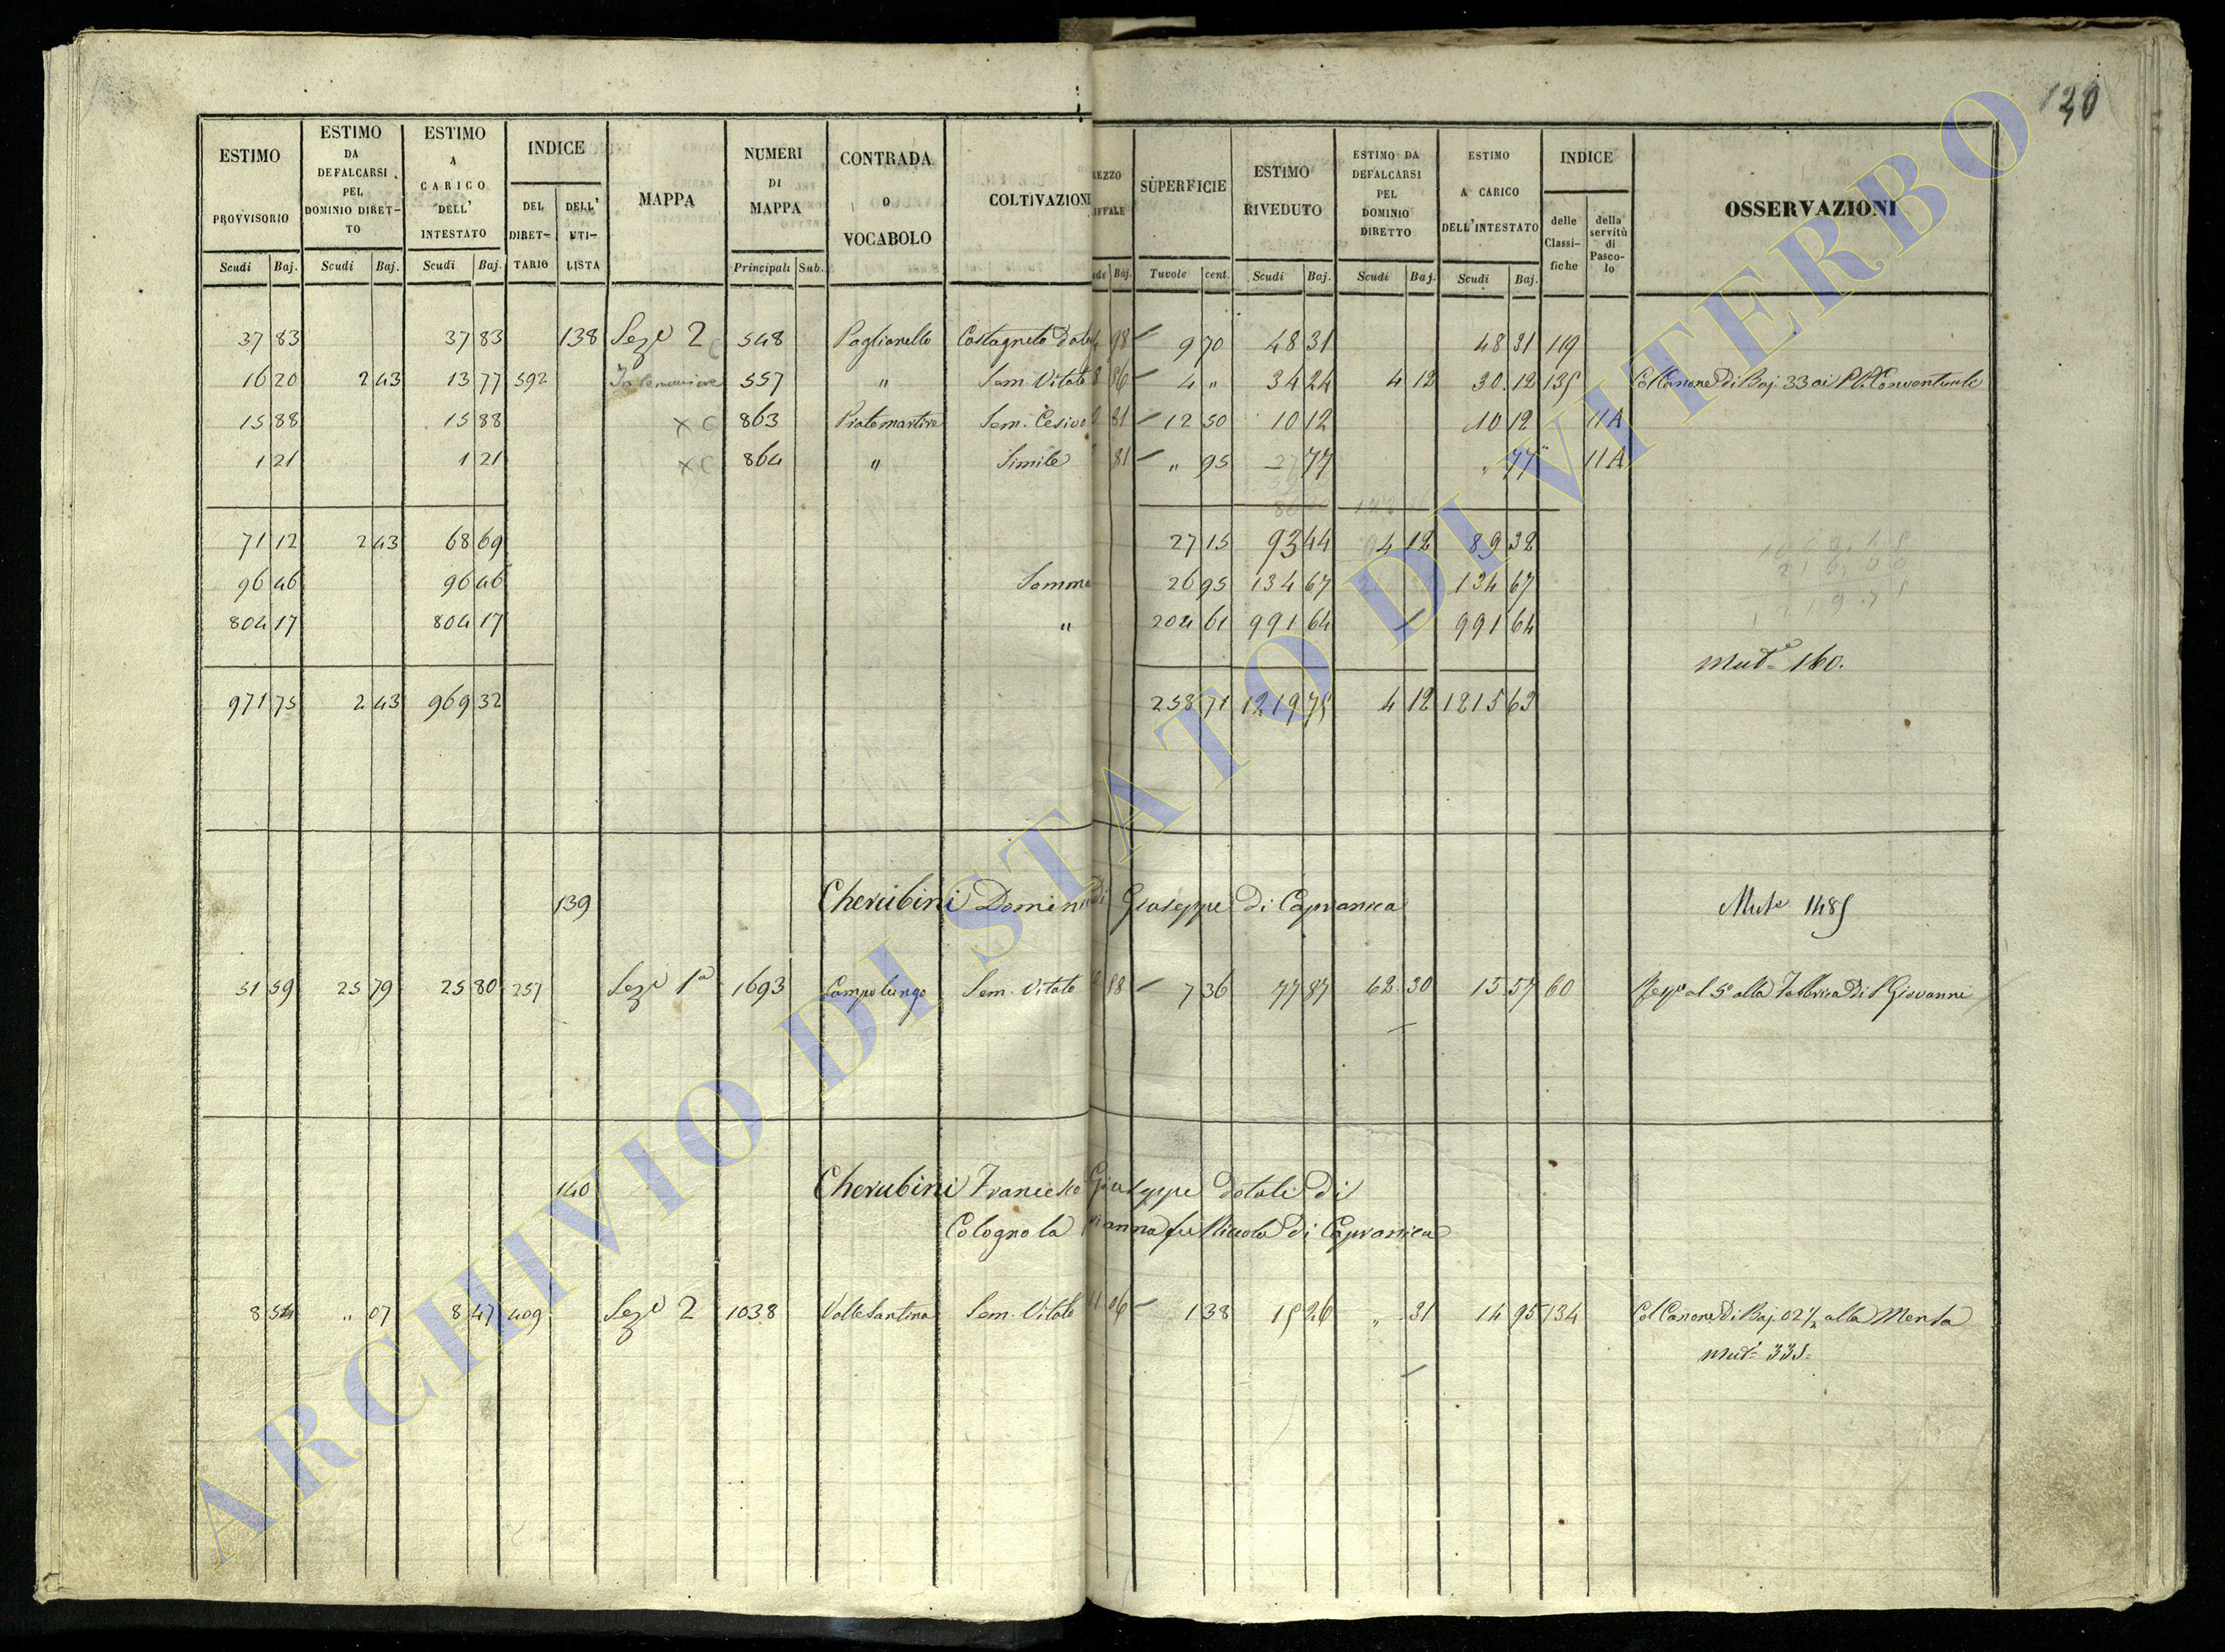 120
ESTIMO PROVVISORIO Scudi Baj.
ESTIMO DA DEFALCARSI PEL DOMINIO DIRETTO Scudi Baj.
ESTIMO A CARICO DELL' INTESTATO Scudi Baj.
INDICE DEL DIRETTARIO DELL' UTILISTA
MAPPA
NUMERI DI MAPPA Principali Sub.
CONTRADA O VOCABOLO
COLTIVAZIONE
SUPERFICIE Tavole cent.
ESTIMO RIVEDUTO Scudi Baj.
ESTIMO DA DEFALCARSI PEL DOMINIO DIRETTO Scudi Baj.
ESTIMO A CARICO DELL'INTESTATO Scudi Baj.
INDICE delle Classifiche della servitù di Pascolo
OSSERVAZIONI
37 83 37 83 138 Sez.e 2 548 Paglianello Castagneto 98 9 70 48 31 48 31 119
16 20 2 43 13 77 592 557 " Sem. Vitato 86 4 " 34 24 4 12 30 12 135 Col Canone di Baj. 33 ai Conventuali
15 88 15 88 x C 863 Pratomartire Sem. Cesivo 81 12 50 10 12 10 12 11 A
1 21 1 21 x C 864 " Simile 81 " 95 " 77 " 77 11 A
71 12 2 43 68 69 27 15 93 44 4 12 89 32
96 46 96 46 Somma 26 95 134 67 134 67
804 17 804 17 " 204 61 991 64 991 64
Mut.e 160.
971 75 2 43 969 32 258 71 1219 75 4 12 1215 63
139 Cherubini Domenico di Giuseppe di Capranica Mut.e 1485
51 59 25 79 25 80 257 Sez.e 1a 1693 Campolungo Sem. Vitato 88 7 36 77 87 62 30 15 57 60 al 5o alla Fabbrica di S. Giovanni
140 Cherubini Francesco Giuseppe dotali di
Colognola fu Niccola di Capranica
8 54 " 07 8 47 409 Sez.e 2 1038 Valle Santina Sem. Vitato 06 1 38 15 26 " 31 14 95 134 Col Canone di Baj. 02 1/2 alla Mensa
Mut.e 335
ARCHIVIO DI STATO DI VITERBO